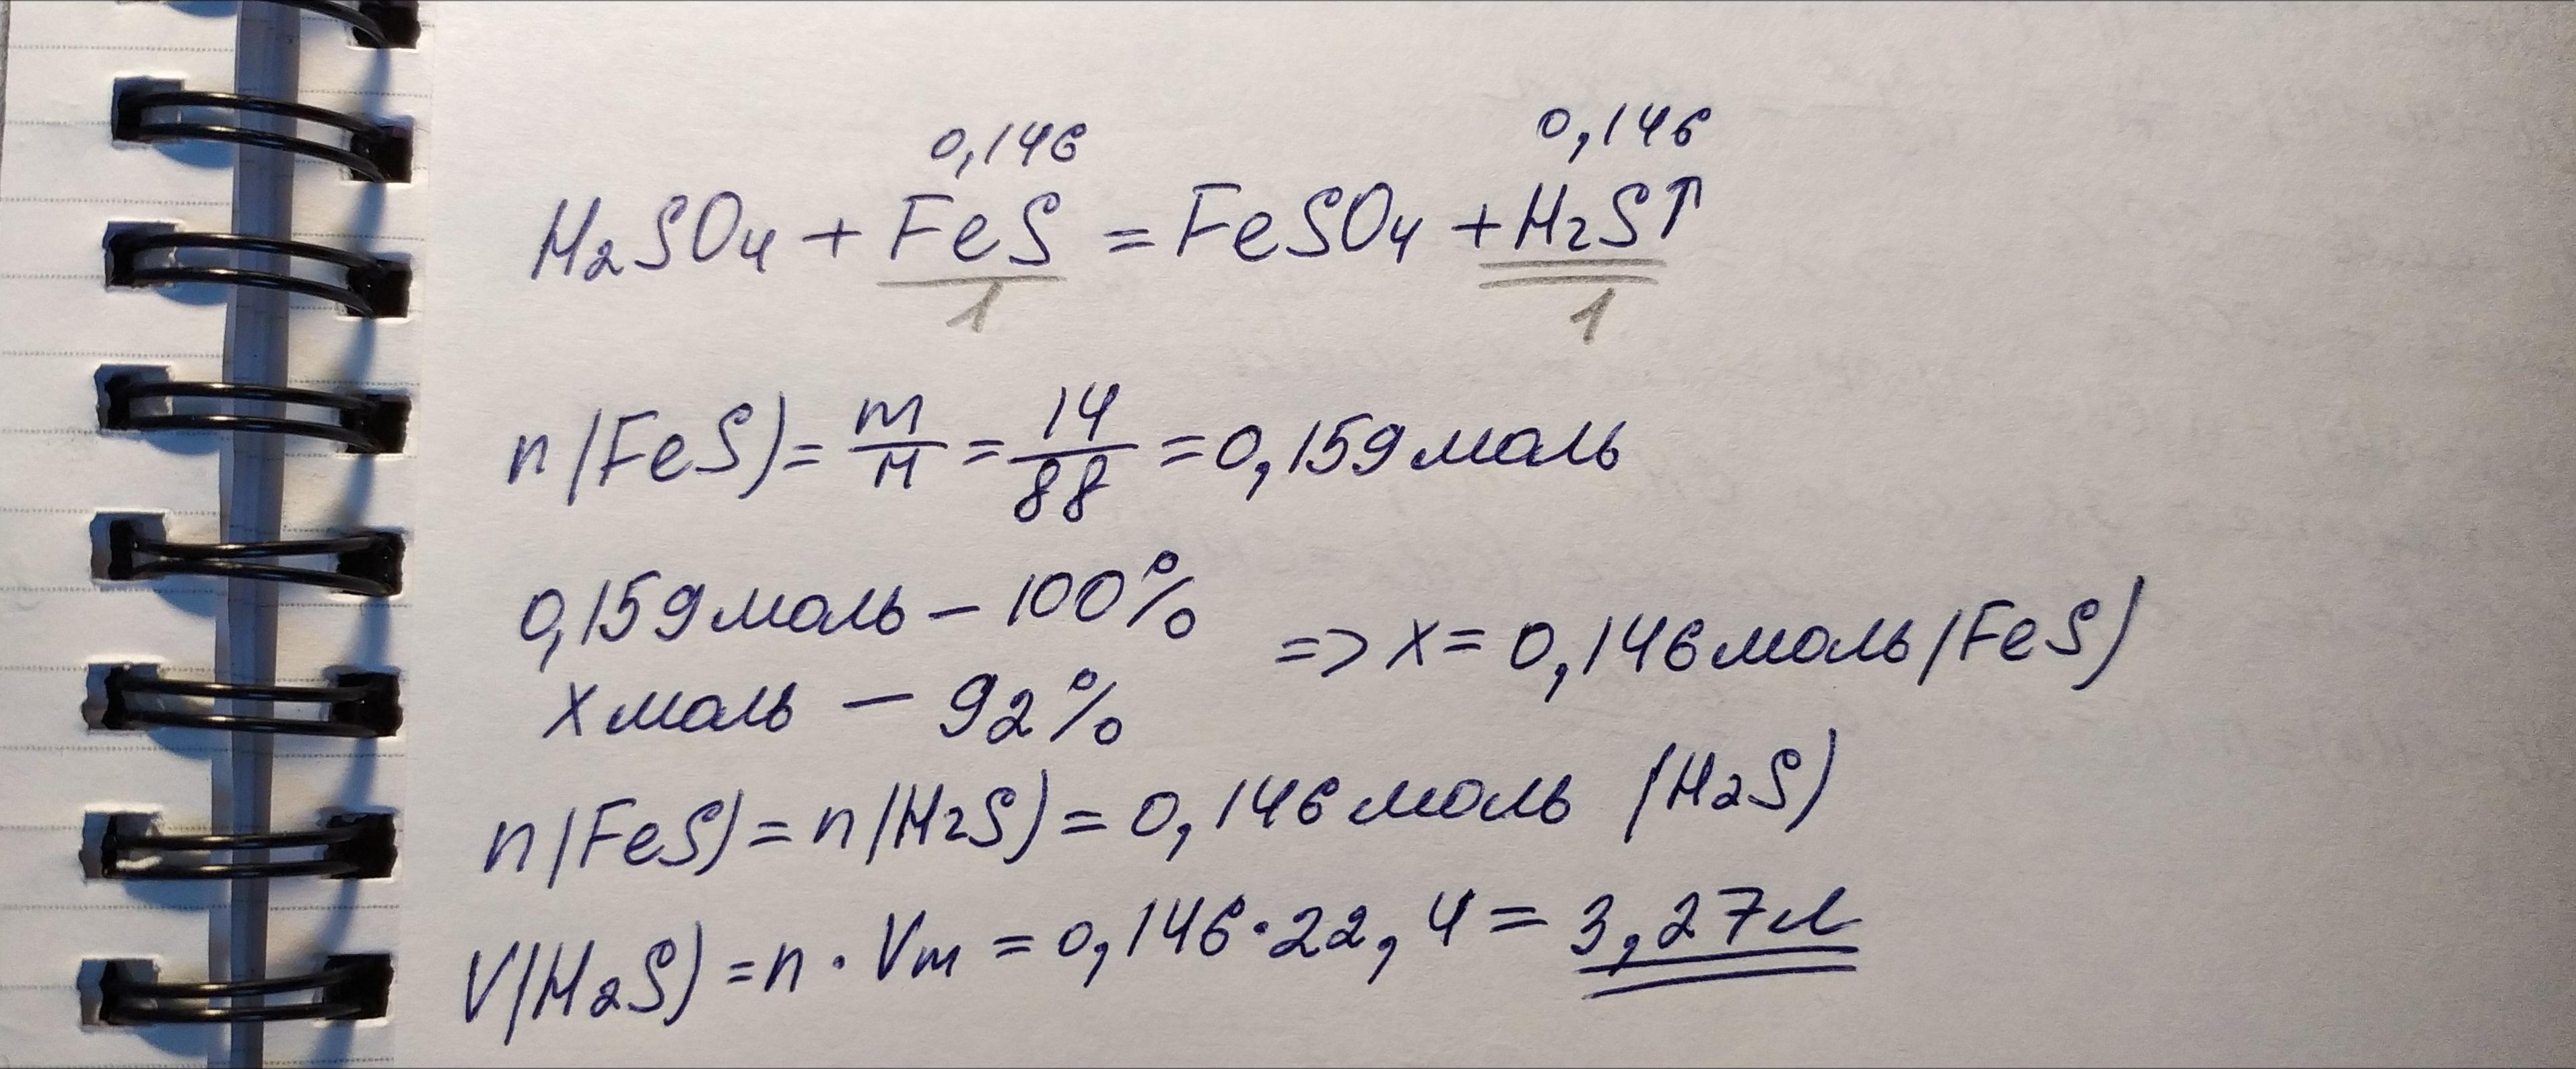 0,146 0,146
H₂SO₄ + FeS = FeSO₄ + H₂S↑
1 1
n(FeS) = m/M = 14/88 = 0,159 моль
0,159 моль – 100%
x моль – 92%
=> x = 0,146 моль (FeS)
n(FeS) = n(H₂S) = 0,146 моль (H₂S)
V(H₂S) = n · Vm = 0,146 · 22,4 = 3,27 л